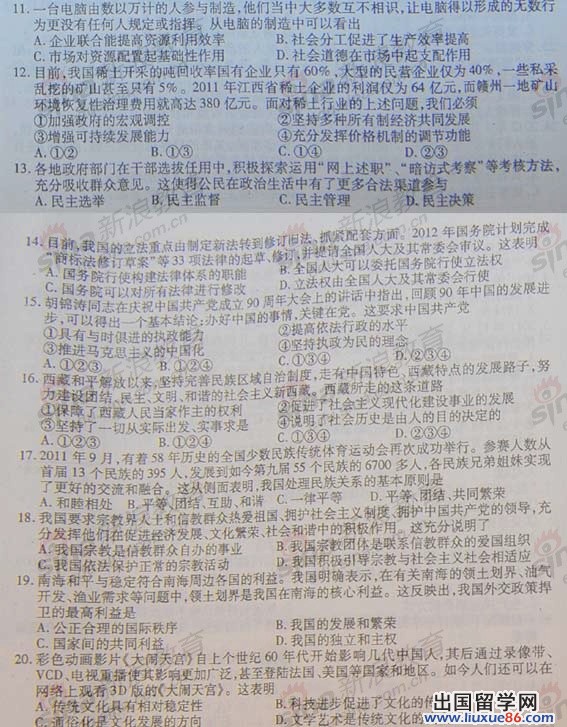 11. 一台电脑由数以万计的人参与制造,他们当中大多数互不相识,让电脑得以形成的无数行
为更没有任何人规定或指挥。从电脑的制造中可以看出
A. 企业联合能提高资源利用效率 B. 社会分工促进了生产效率提高
C. 市场对资源配置起基础性作用 D. 社会道德在市场中起支配作用
12. 目前,我国稀土开采的吨回收率国有企业只有60%、大型的民营企业仅为40%,一些私采
乱挖的矿山甚至只有5%。2011年江西省稀土企业的利润仅为64亿元,而赣州一地矿山
环境恢复性治理费用就高达380亿元。面对稀土行业的上述问题,我们必须
①加强政府的宏观调控 ②坚持多种所有制经济共同发展
③增强可持续发展能力 ④充分发挥价格机制的调节功能
A. ①② B. ①③ C. ②④ D. ③④
13. 各地政府部门在干部选拔任用中,积极探索运用“网上述职”、“暗访式考察”等考核方法,
充分吸收群众意见。这使得公民在政治生活中有了更多合法渠道参与
A. 民主选举 B. 民主监督 C. 民主管理 D. 民主决策
14. 目前,我国的立法重点由制定新法转到修订旧法、抓紧配套方面。2012年国务院计划完成
“商标法修订草案”等33项法律的起草、修订,并提请全国人大及其常委会审议。这表明
A. 国务院行使构建法律体系的职能 B. 全国人大可以委托国务院行使立法权
C. 国务院可以对所有法律进行修改 D. 立法权由全国人大及其常委会行使
15. 胡锦涛同志在庆祝中国共产党成立90周年大会上的讲话中指出,回顾90年中国的发展进
步,可以得出一个基本结论:办好中国的事情,关键在党。这要求中国共产党
①具有与时俱进的执政能力 ②提高依法行政的水平
③推进马克思主义的中国化 ④坚持执政为民的理念
A. ①②③ B. ①②④ C. ①③④ D. ②③④
16. 西藏和平解放以来,坚持完善民族区域自治制度,走有中国特色、西藏特点的发展路子,努
力建设团结、民主、文明、和谐的社会主义新西藏。西藏所走的这条道路
①保障了西藏人民当家作主的权利 ②促进了社会主义现代化建设事业的发展
③坚持了一切从实际出发、实事求是 ④社会历史是由人的目的决定的
A. ①②③ B. ①②④ C. ①③④ D. ②③④
17. 2011年9月,有着58年历史的全国少数民族传统体育运动会再次成功举行。参赛人数从
首届13个民族的395人,发展到如今第九届55个民族的6700多人,各民族兄弟姐妹实现
了更好的交流和融合。这从侧面表明,我国处理民族关系的基本原则是
A. 和睦相处 B. 平等、团结、互助、和谐 C. 一律平等 D. 平等、团结、共同繁荣
18. 我国要求宗教界人士和信教群众热爱祖国、拥护社会主义制度、拥护中国共产党的领导,充
分发挥他们在促进经济发展、文化繁荣、社会和谐中的积极作用。这充分说明了
A. 我国宗教是信教群众自办的事业 B. 我国宗教团体是联系信教群众的爱国组织
C. 我国依法保护正常的宗教活动 D. 我国积极引导宗教与社会主义社会相适应
19. 南海和平与稳定符合南海周边各国的利益。我国明确表示,在有关南海的领土划界、油气
开发、渔业需求等问题中,领土划界是我国在南海的核心利益。这反映出,我国外交政策捍
卫的最高利益是
A. 公正合理的国际秩序 B. 我国的发展和繁荣
C. 国家间的共同利益 D. 我国的独立和主权
20. 彩色动画影片《大闹天宫》自上个世纪60年代开始影响几代中国人,其后通过录像带、
VCD、电视重播使其影响更加广泛,甚至登陆法国、美国等国家和地区。如今人们还可以在
网络上观看3D版的《大闹天宫》。这表明
A. 传统文化具有相对稳定性 B. 科技进步促进了文化的
C. 通俗化是文化发展的方向 D. 文学艺术是传统文化的
新浪教育
sina
.com.cn
出国留学网
www.liuxue86.com